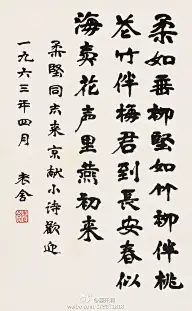 柔如垂柳堅如竹柳伴桃
花竹伴梅君到長安春似
海賣花声里燕初来
柔堅同志来京献小詩歡迎
一九六三年四月
老舍